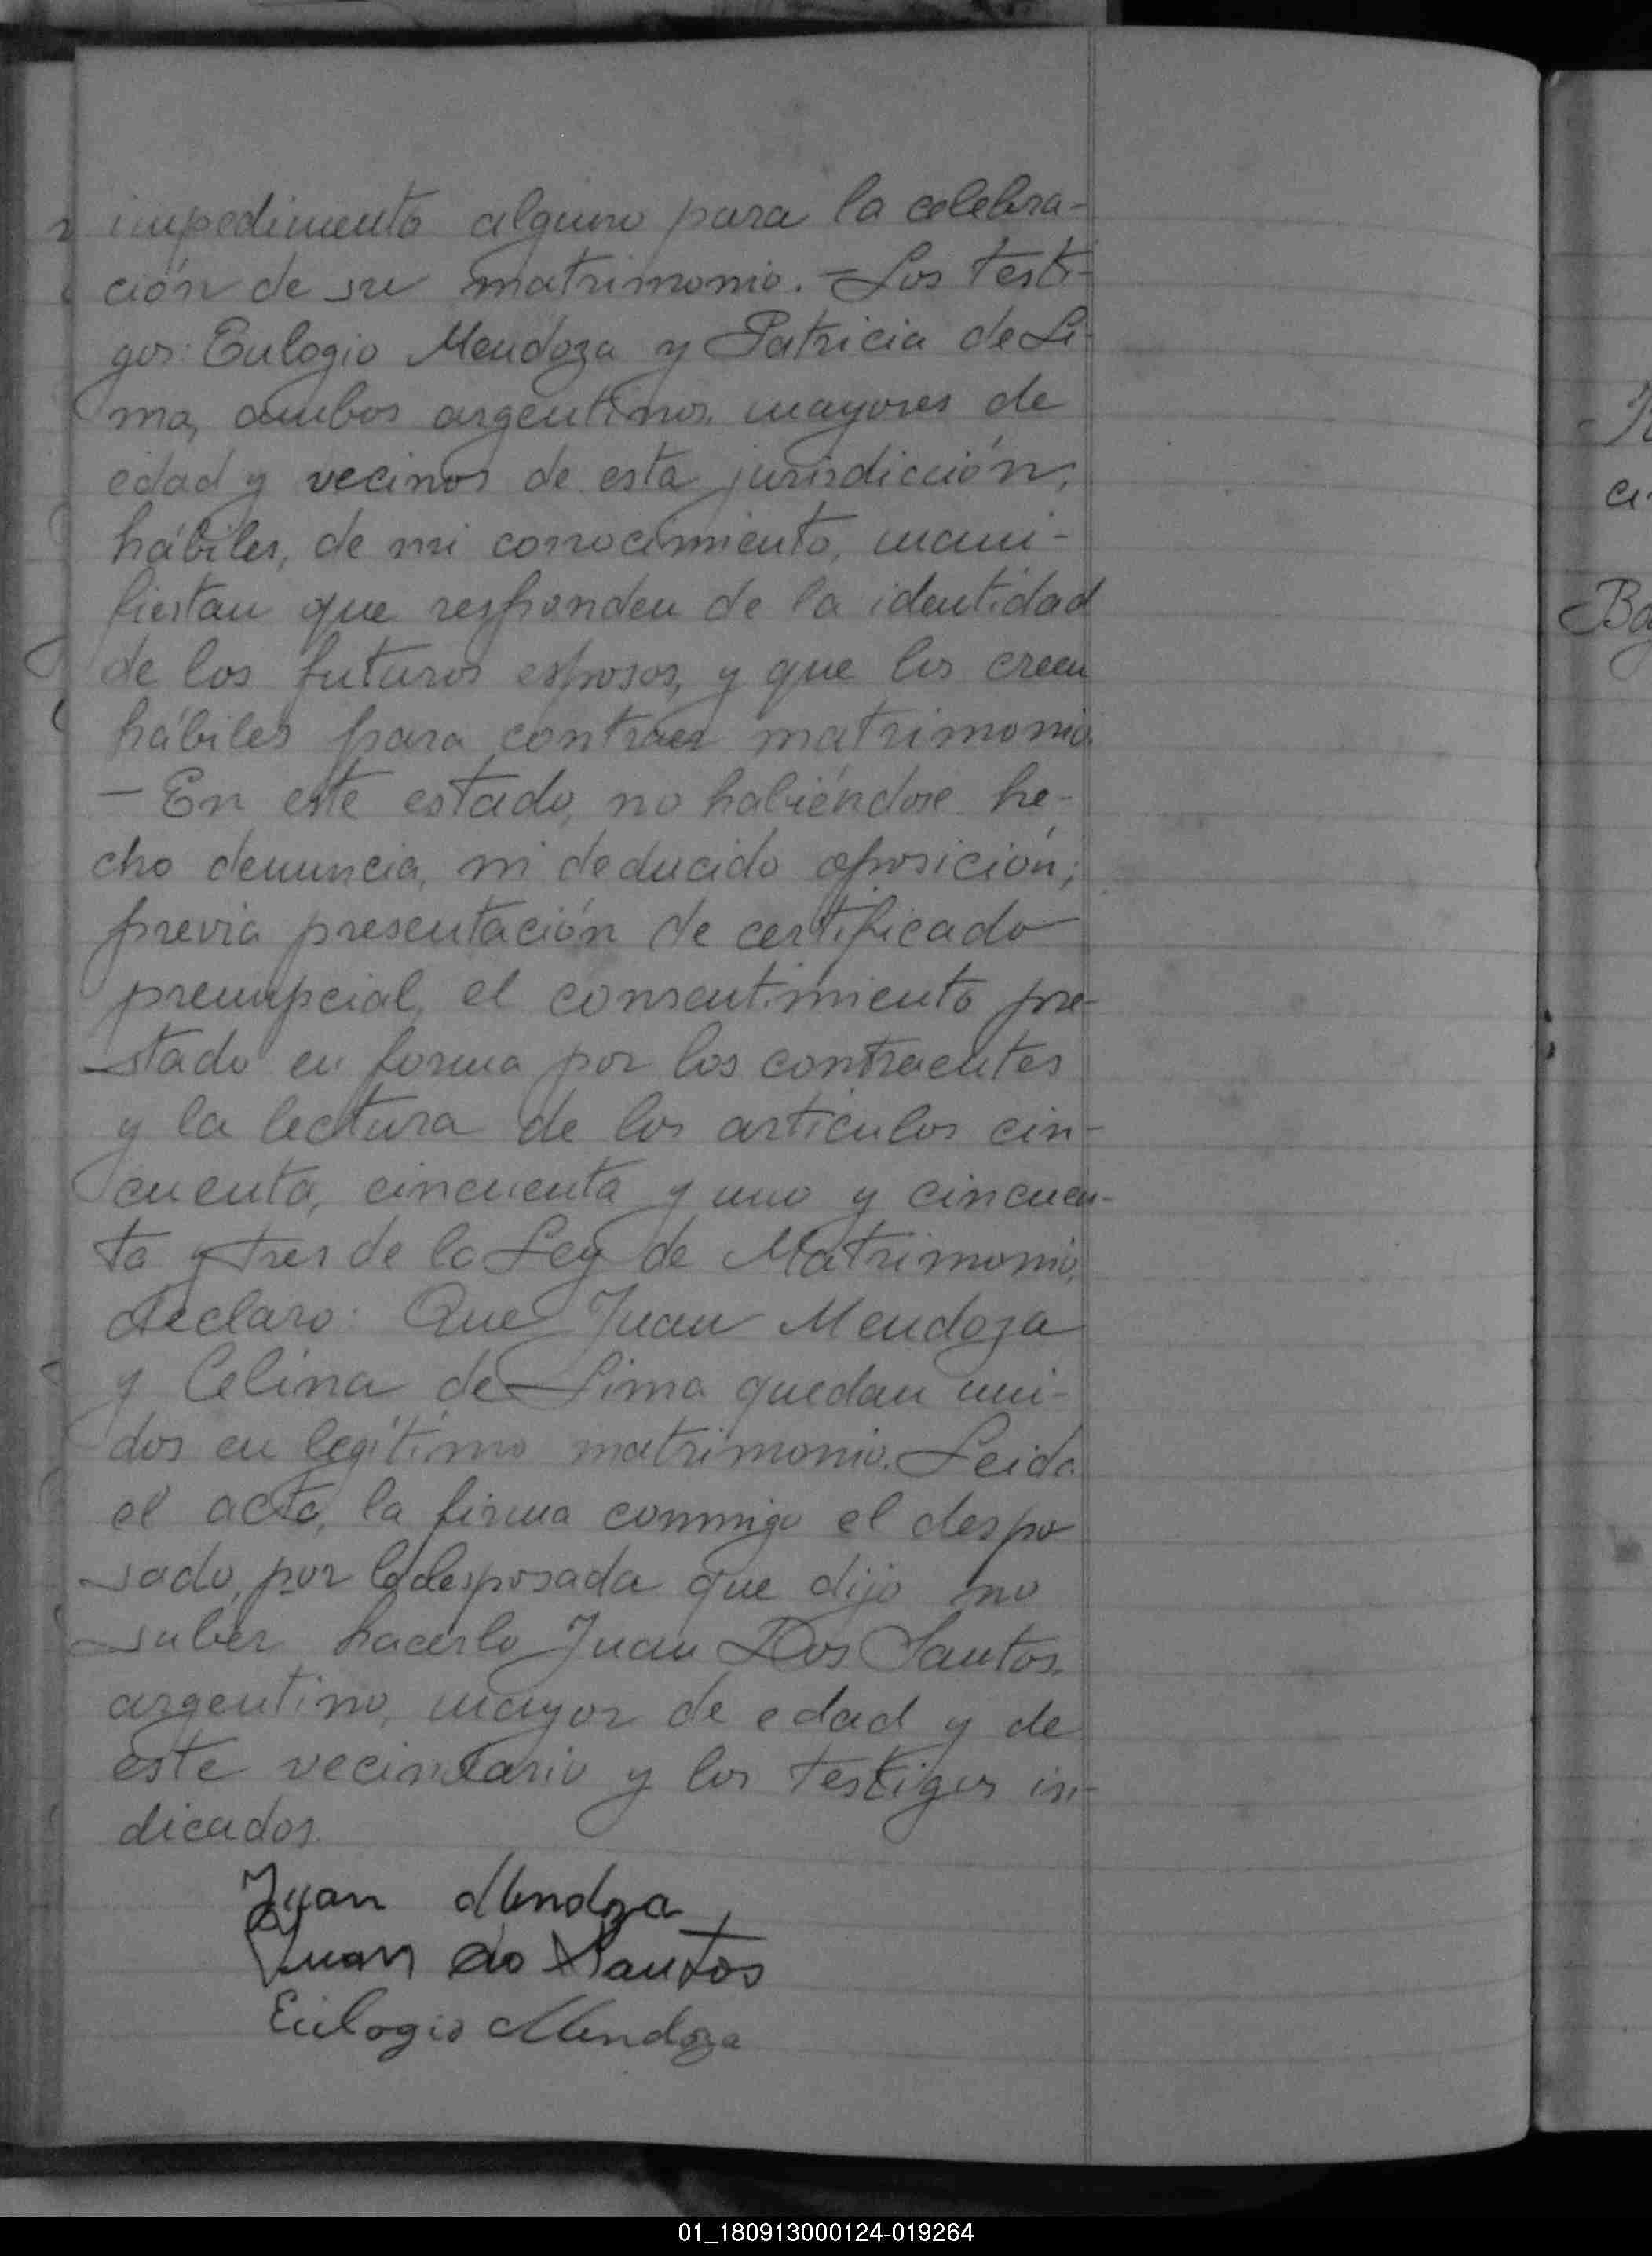 impedimento alguno para la celebra-
ción de su matrimonio. = Los testi-
gos: Eulogio Mendoza y Patricia de Li-
ma, ambos argentinos, mayores de
edad y vecinos de esta jurisdicción,
hábiles, de mi conocimiento, mani-
fiestan que responden de la identidad
de los futuros esposos, y que los creen
hábiles para contraer matrimonio.
— En este estado, no habiéndose he-
cho denuncia, ni deducido oposición;
previa presentación de certificado
prenupcial, el consentimiento pre-
stado en forma por los contraentes
y la lectura de los artículos cin-
cuenta, cincuenta y uno y cincuen-
ta y tres de la Ley de Matrimonio,
declaro: Que Juan Mendoza
y Celina de Lima quedan uni-
dos en legítimo matrimonio. Leida
el acta, la firma conmigo el despo
sado, por la desposada que dijo no
saber hacerlo Juan Dos Santos,
argentino, mayor de edad y de
este vecindario y los testigos in-
dicados.
Juan Mendoza
Juan do Santos
Eulogio Mendoza
01_180913000124-019264